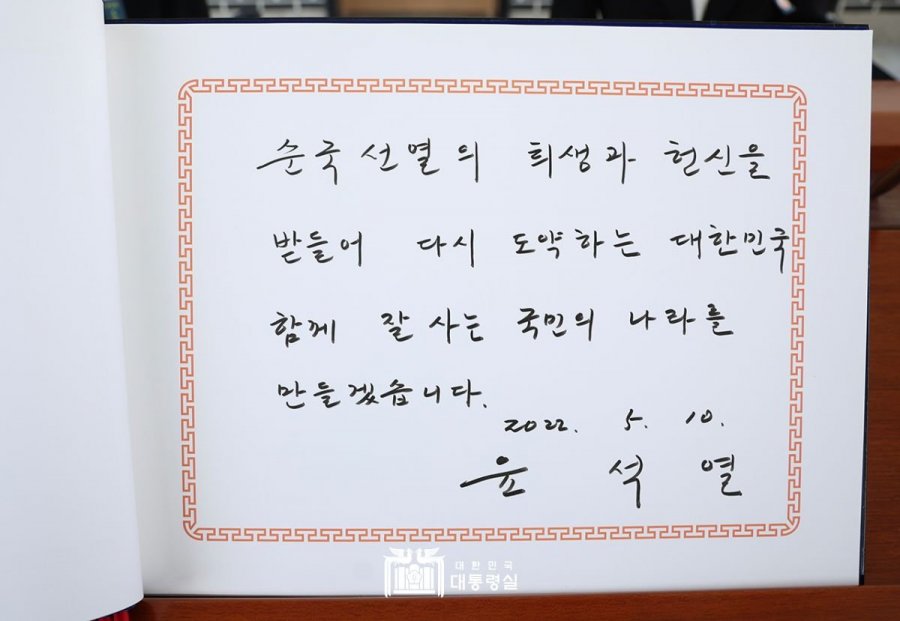 순국선열의 희생과 헌신을
받들어 다시 도약하는 대한민국
함께 잘 사는 국민의 나라를
만들겠습니다.
2022. 5. 10.
윤 석 열
대한민국
대통령실